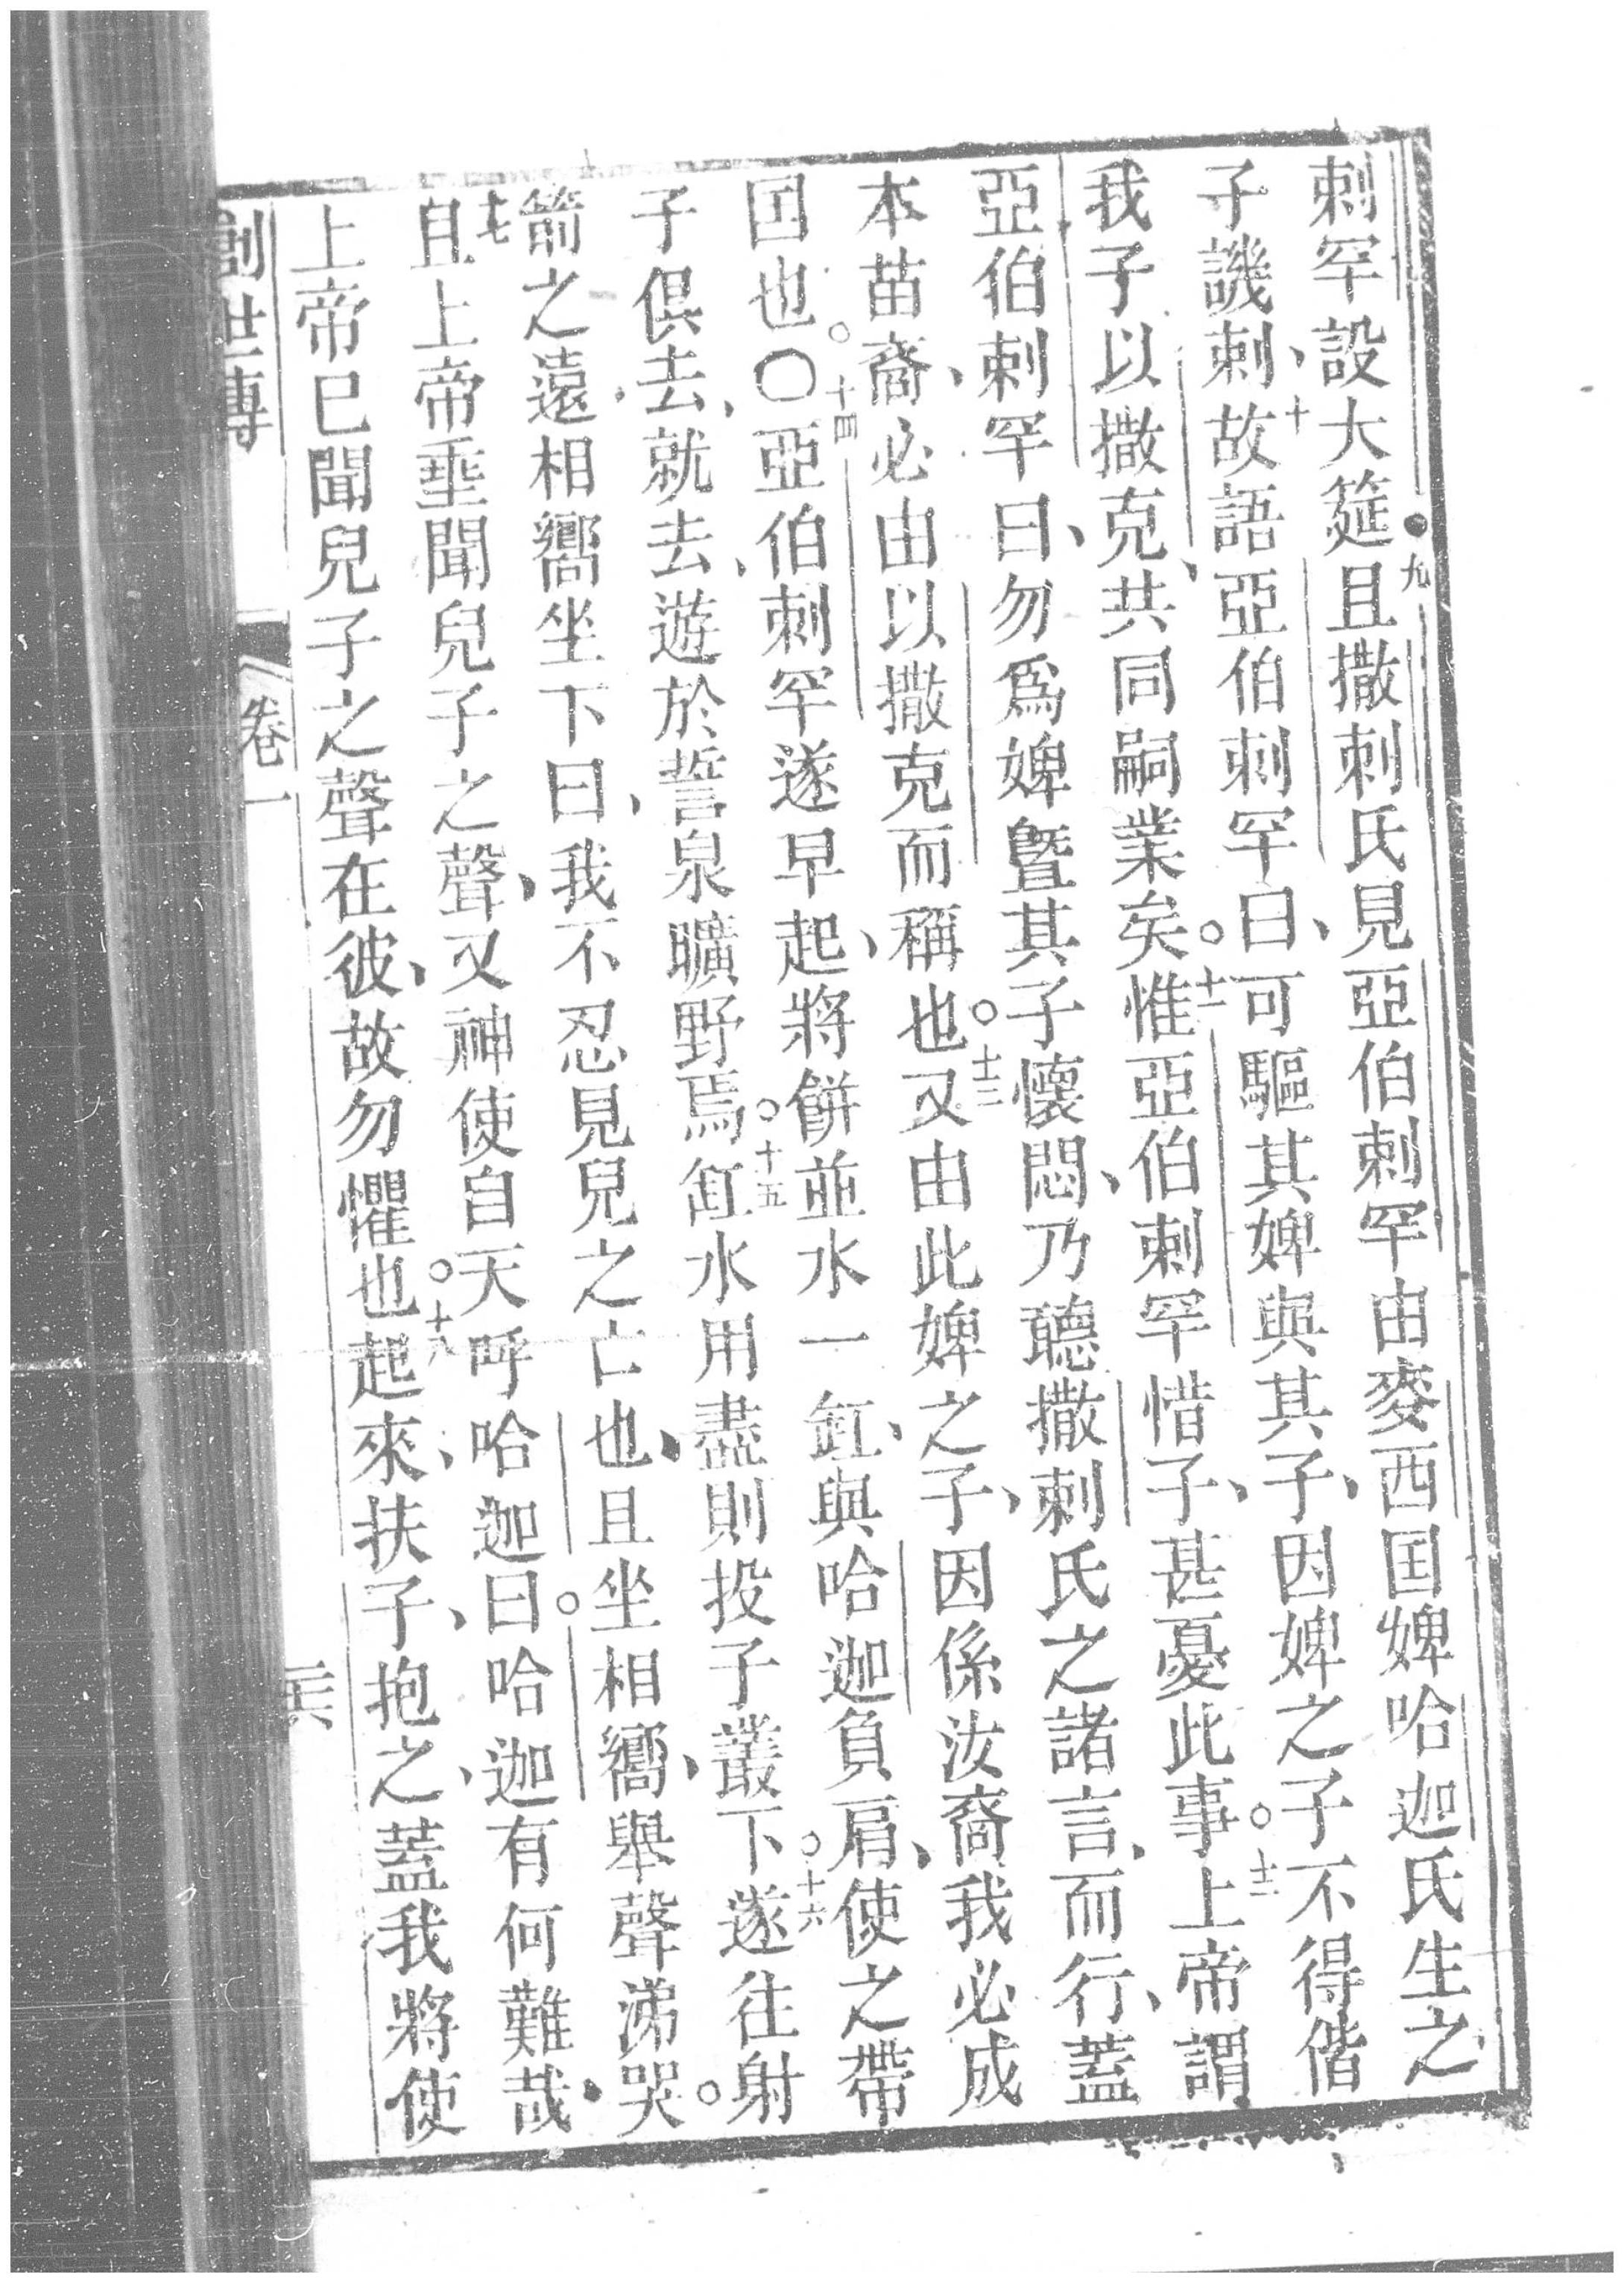 剌罕設大筵●九且撒剌氏見亞伯剌罕由麥西囯婢哈迦氏生之
子譏刺、十故語亞伯剌罕曰、可驅其婢與其子、因婢之子不得偕
我子以撒克、共同嗣業矣。十一惟亞伯剌罕惜子、甚憂此事。十二上帝謂
亞伯剌罕曰、勿爲婢曁其子懷悶、乃聽撒剌氏之諸言、而行、蓋
本苗裔、必由以撒克而稱也。十三又由此婢之子、因係汝裔我必成
囯也。〇十四亞伯剌罕遂早起、將餅並水一缸、與哈迦負肩、使之帶
子俱去、就去、遊於誓泉曠野焉。十五缸水用盡則投子叢下。十六遂往射
箭之遠、相嚮坐下曰、我不忍見兒之亡也、且坐相嚮、舉聲涕哭。
十七且上帝垂聞兒子之聲、又神使自天呼哈迦曰。哈迦有何難哉、
上帝已聞兒子之聲在彼、故勿懼也。十八起來、扶子、抱之、蓋我將使
創世傳
卷一